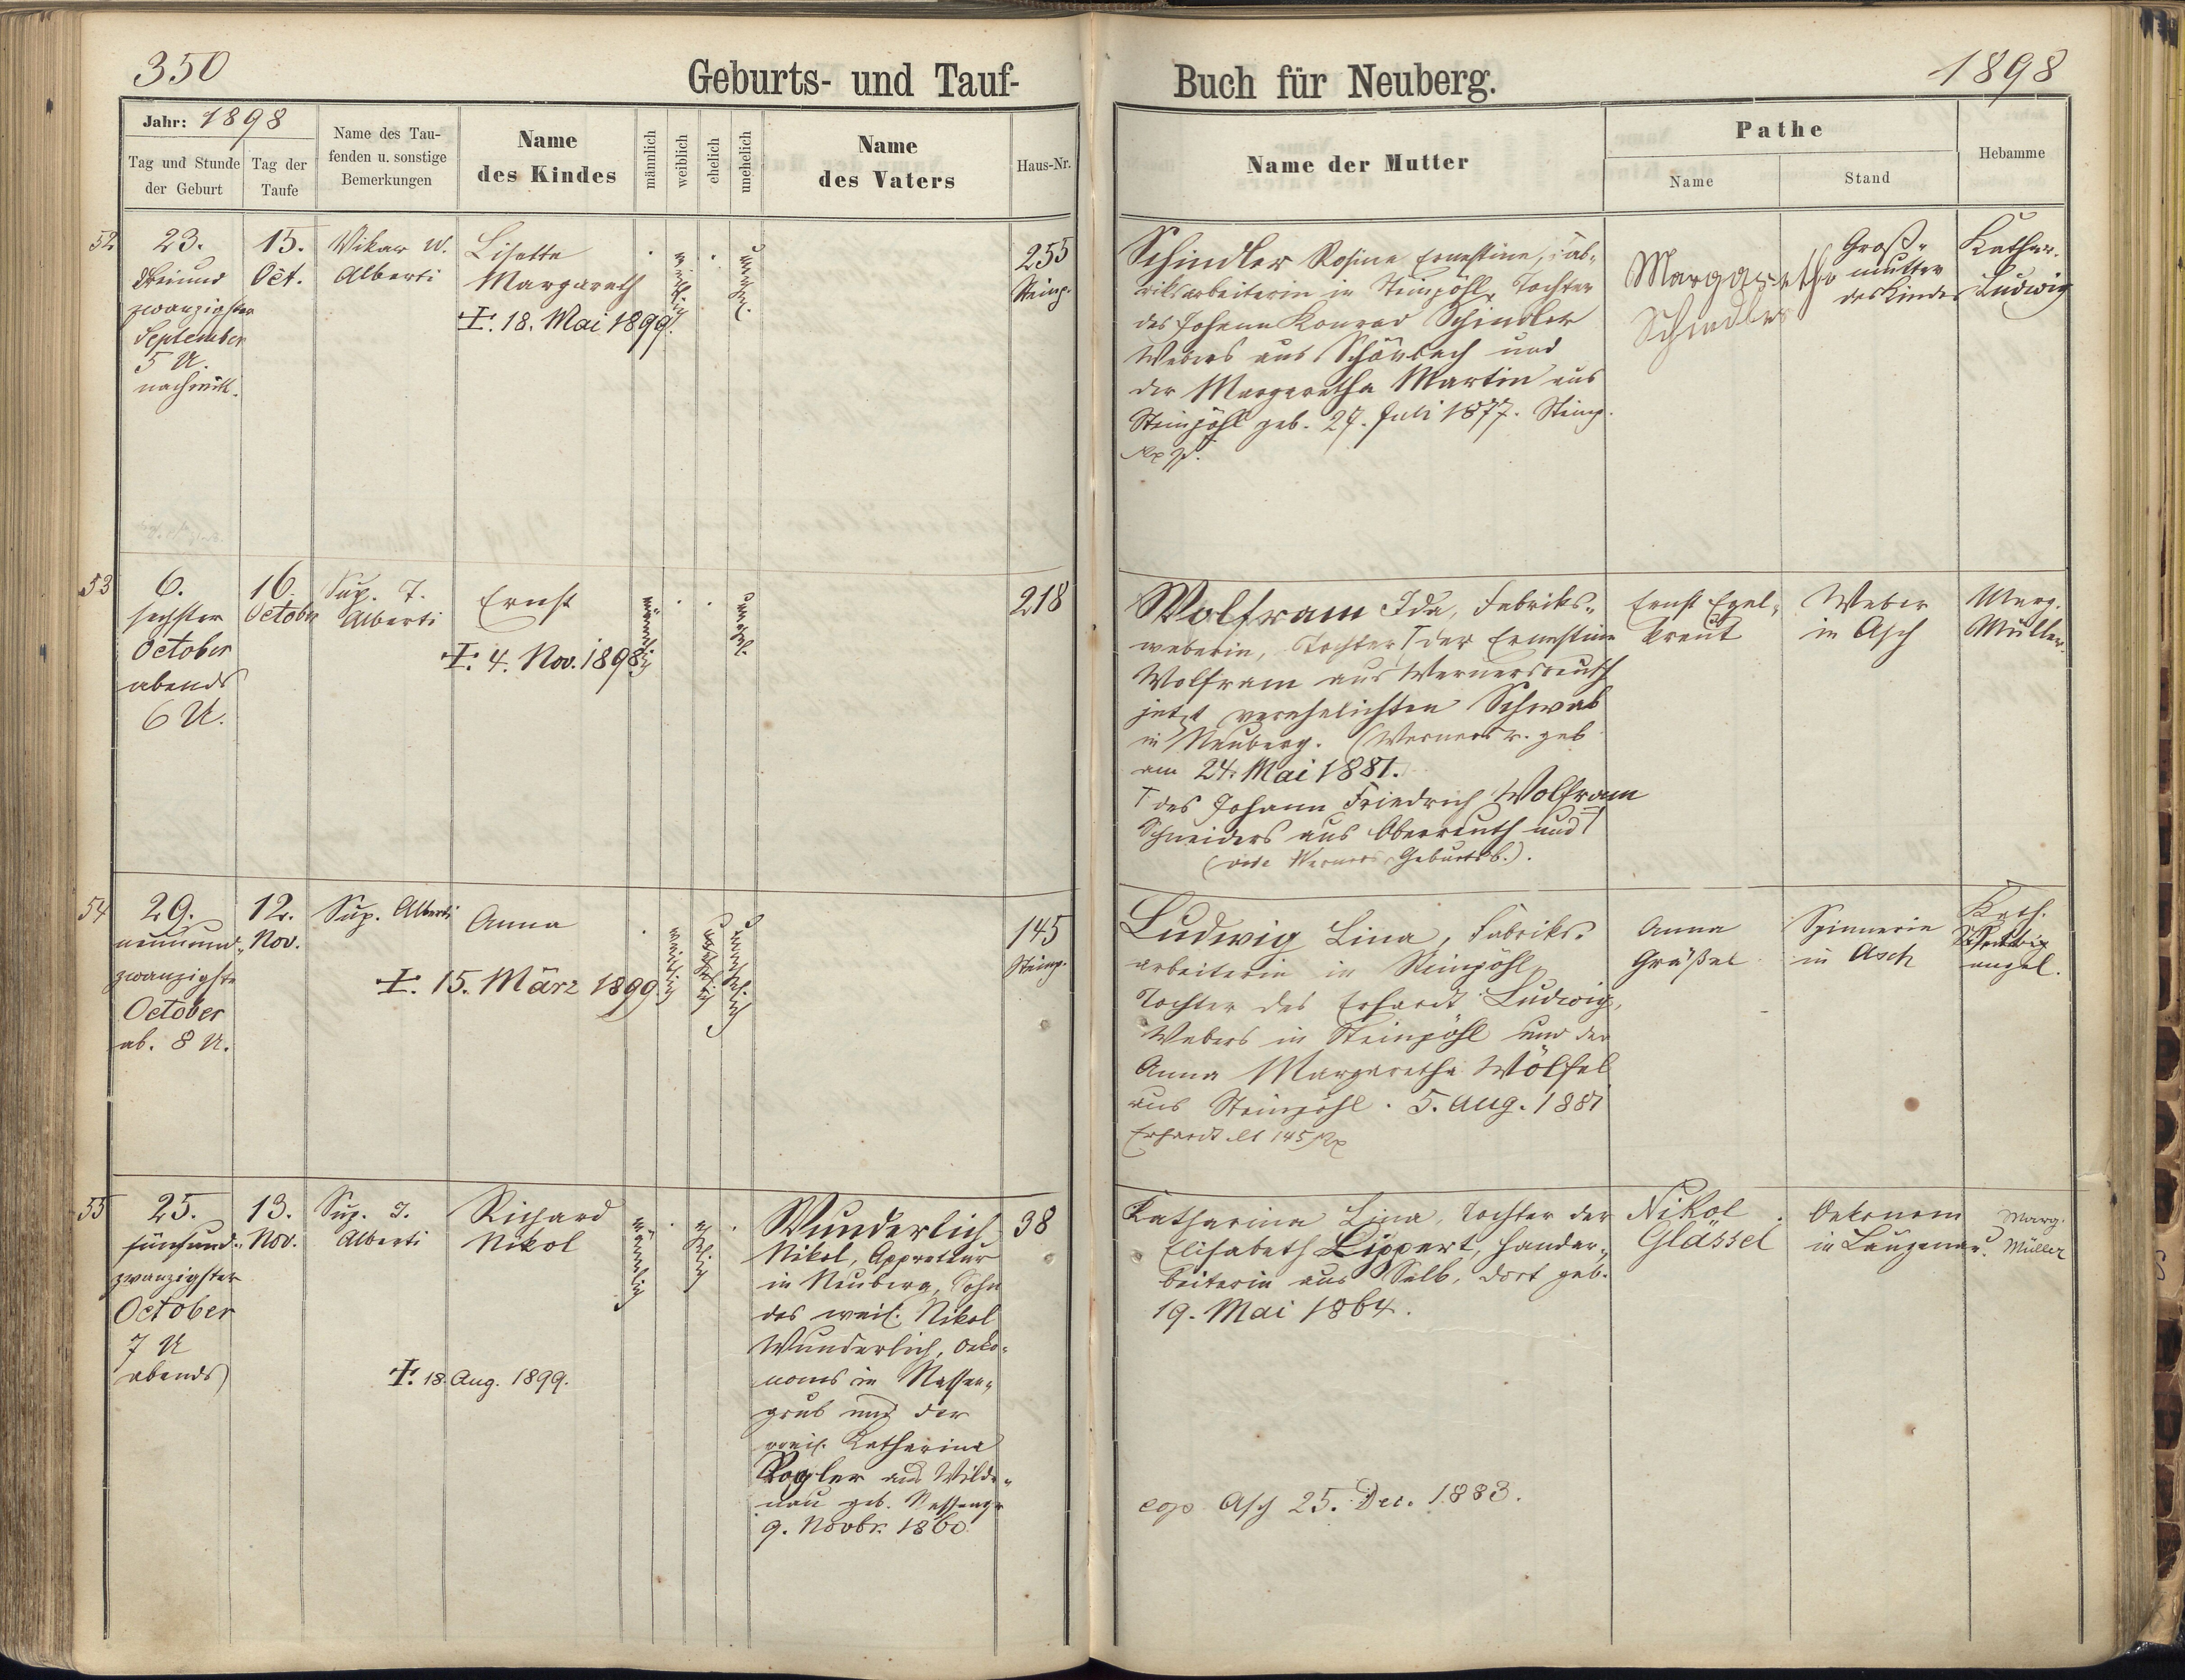 350
Geburts- und Tauf-
Buch für Neuberg.
1898
Jahr: 1898
Tag und Stunde
der Geburt
Tag der
Taufe
Name des Tau-
fenden u. sonstige
Bemerkungen
Name
des Kindes
männlich
weiblich
ehelich
unehelich
Name
des Vaters
Haus-Nr.
Name der Mutter
Pathe
Name
Stand
Hebamme
52
23.
Dreiund
zwanzigster
September
5 U.
nachmitt.
15.
Oct.
Vikar W.
Alberti
Lisette
Margareth
18. Mai 1899.
weiblich
unehel.
255
Steinp.
Schindler Rosine Ernestine, Fab-
riksarbeiterin in Steinpöhl, Tochter
des Johann Konrad Schindler
Webers aus Schönbach und
der Margaretha Martin aus
Steinpöhl geb. 27. Juli 1877. Steinp.
Margarethe
Schindler
Groß-
mutter
des Kindes
Kathar.
Ludwig
53
6.
sechster
October
abends
6 U.
16.
October
Sup. T.
Alberti
Ernst
4. Nov. 1898
männlich
unehel.
218
Wolfram Ida, Fabriks-
weberin, Tochter der Ernestine
Wolfram aus Wernersreuth
jetzt verehelichten Schwab
in Neuberg. (Wernersr. geb
am 24. Mai 1881.
des Johann Friedrich Wolfram
Schneiders aus Oberreuth und
(vide Werners. Geburtsb.).
Ernst Egel-
kreut
Weber
in Asch
Marg.
Müller.
54
29.
neunund-
zwanzigste
October
ab. 8 U.
12.
Nov.
Sup. Alberti
Anna
15. März 1899
weiblich
unehelich
145
Steinp.
Ludwig Lina, Fabriks-
arbeiterin in Steinpöhl,
Tochter des Erhardt Ludwig,
Webers in Steinpöhl und der
Anna Margaretha Wölfel
aus Steinpöhl. 5. Aug. 1881
Erhardt 145
Anna
Gräßel
Spinnerin
in Asch
Kath.
55
25.
fünfund-
zwanzigster
October
7 U
abends
13.
Nov.
Sup. T.
Alberti
Richard
Nikol
18. Aug. 1899.
männlich
ehelich
Wunderlich
Nikol, Appreteur
in Neuberg, Sohn
des weil. Nikol
Wunderlich, Oeko-
noms in Nassen-
grub und der
weil. Katharina
Rogler aus Wilde-
nau geb. Nassengr
9. Novbr. 1860
98
Katharina Lina, Tochter der
Elisabeth Lippert, Handar-
beiterin aus Selb, dort geb.
19. Mai 1864.
cop. Asch 25. Dec. 1883.
Nikol
Glässel
Oekonom
in Längenau.
Marg.
Müller